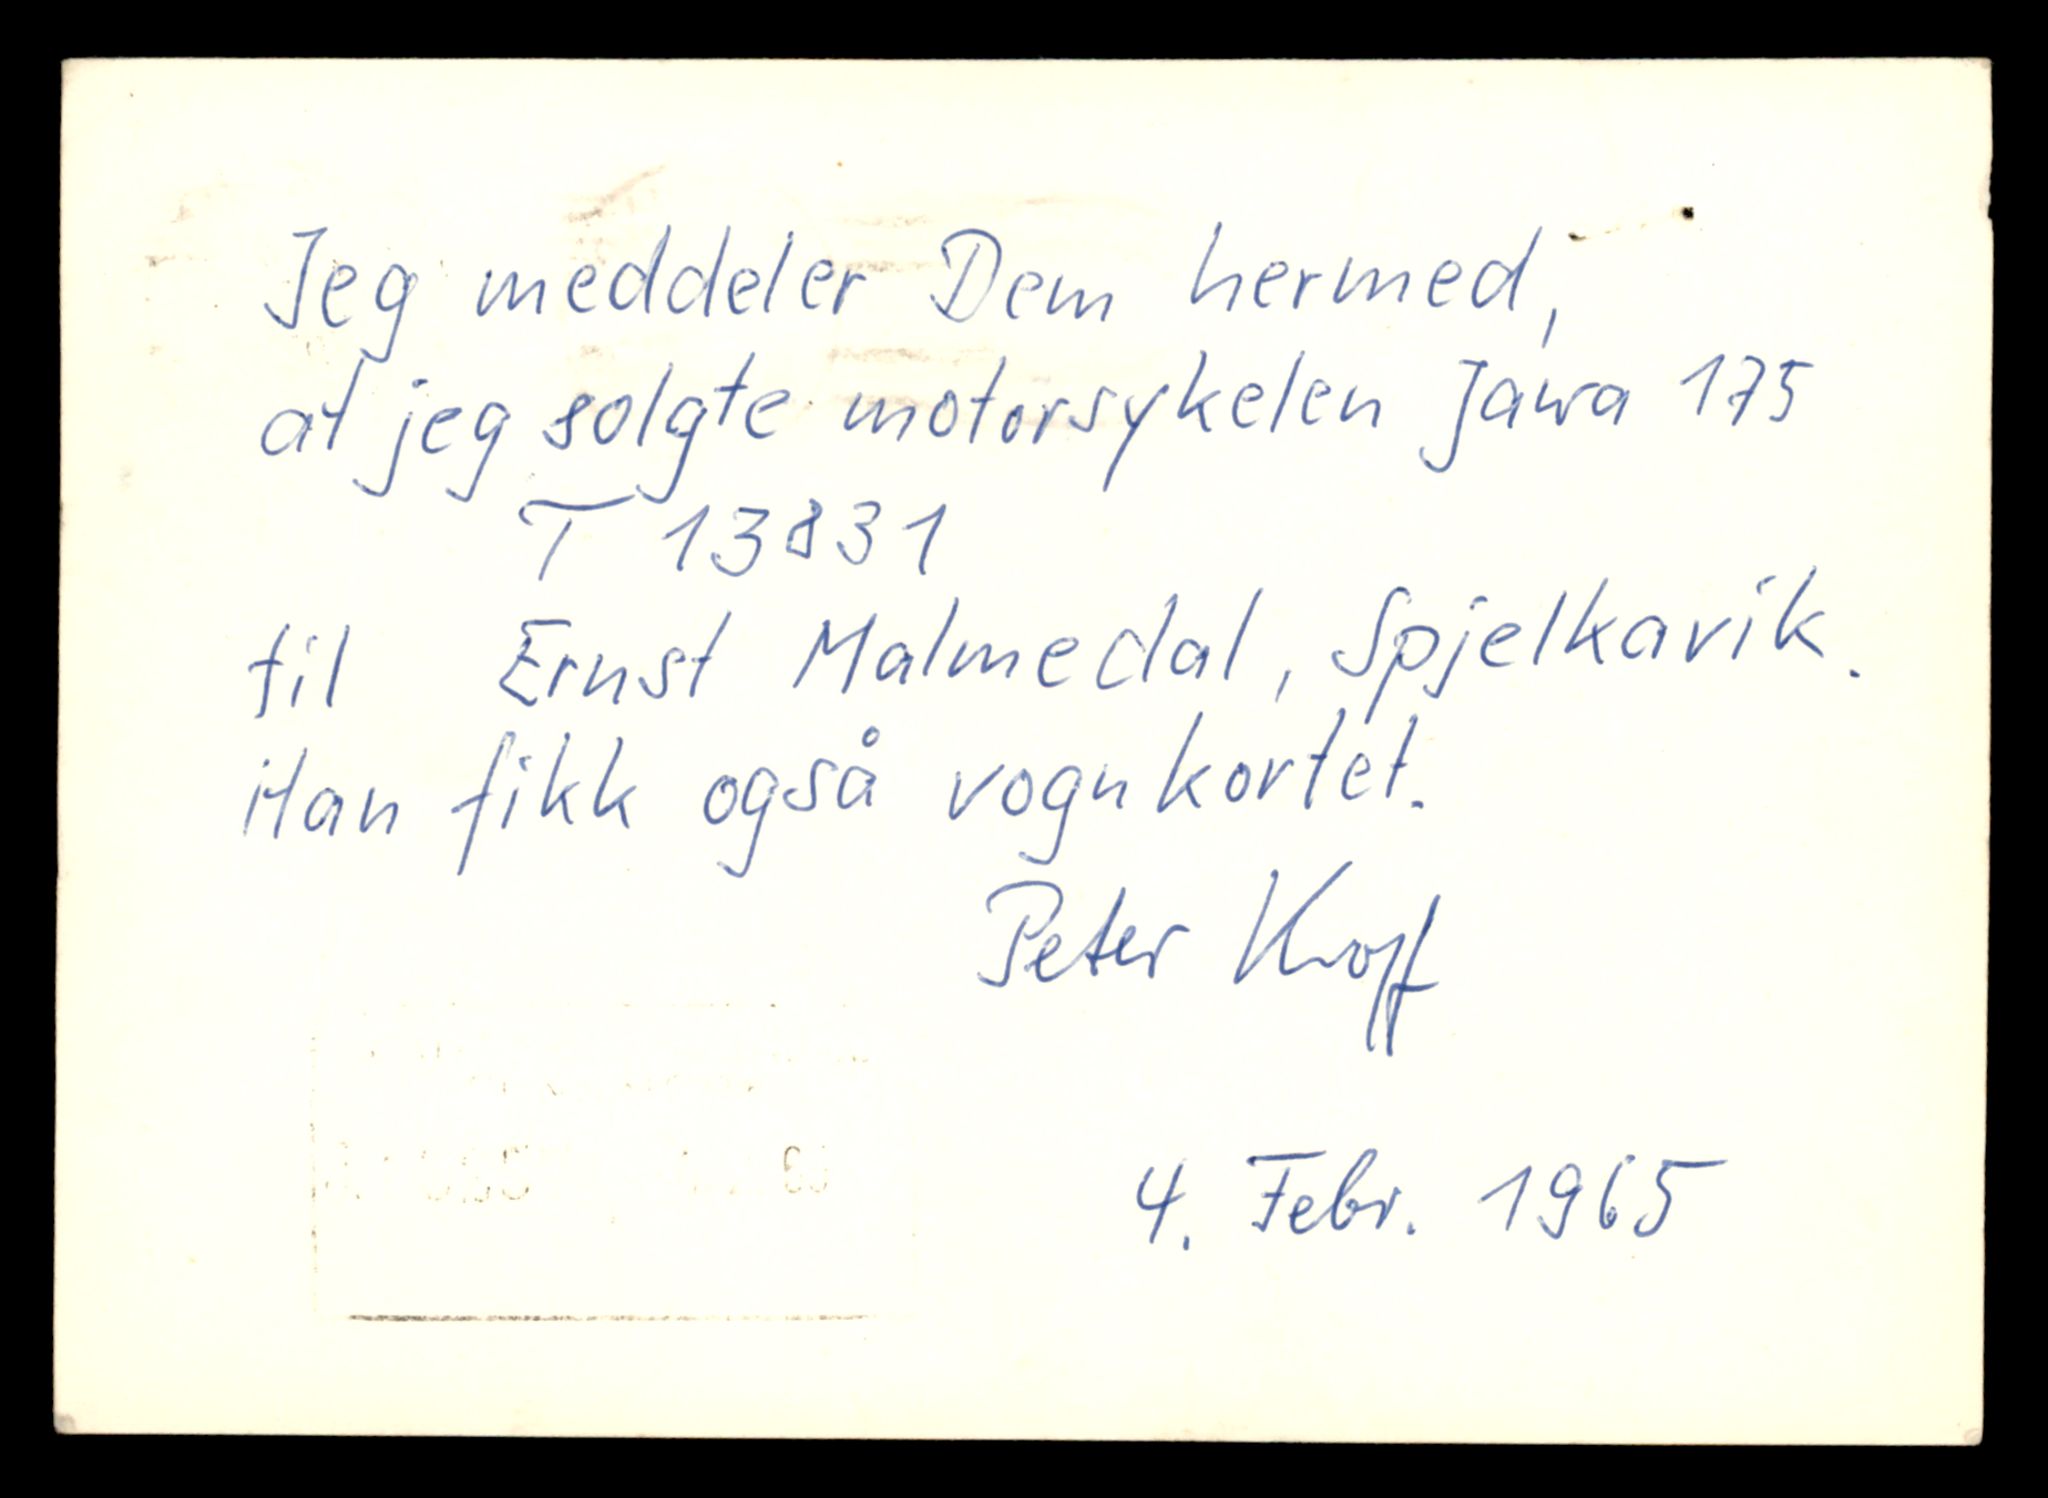 Jeg meddeler Dem hermed,
at jeg solgte motorsykelen Jawa 175
T 13831
til Ernst Malmedal, Spjelkavik.
Han fikk også vognkortet.
Peter Kroff
4. Febr. 1965